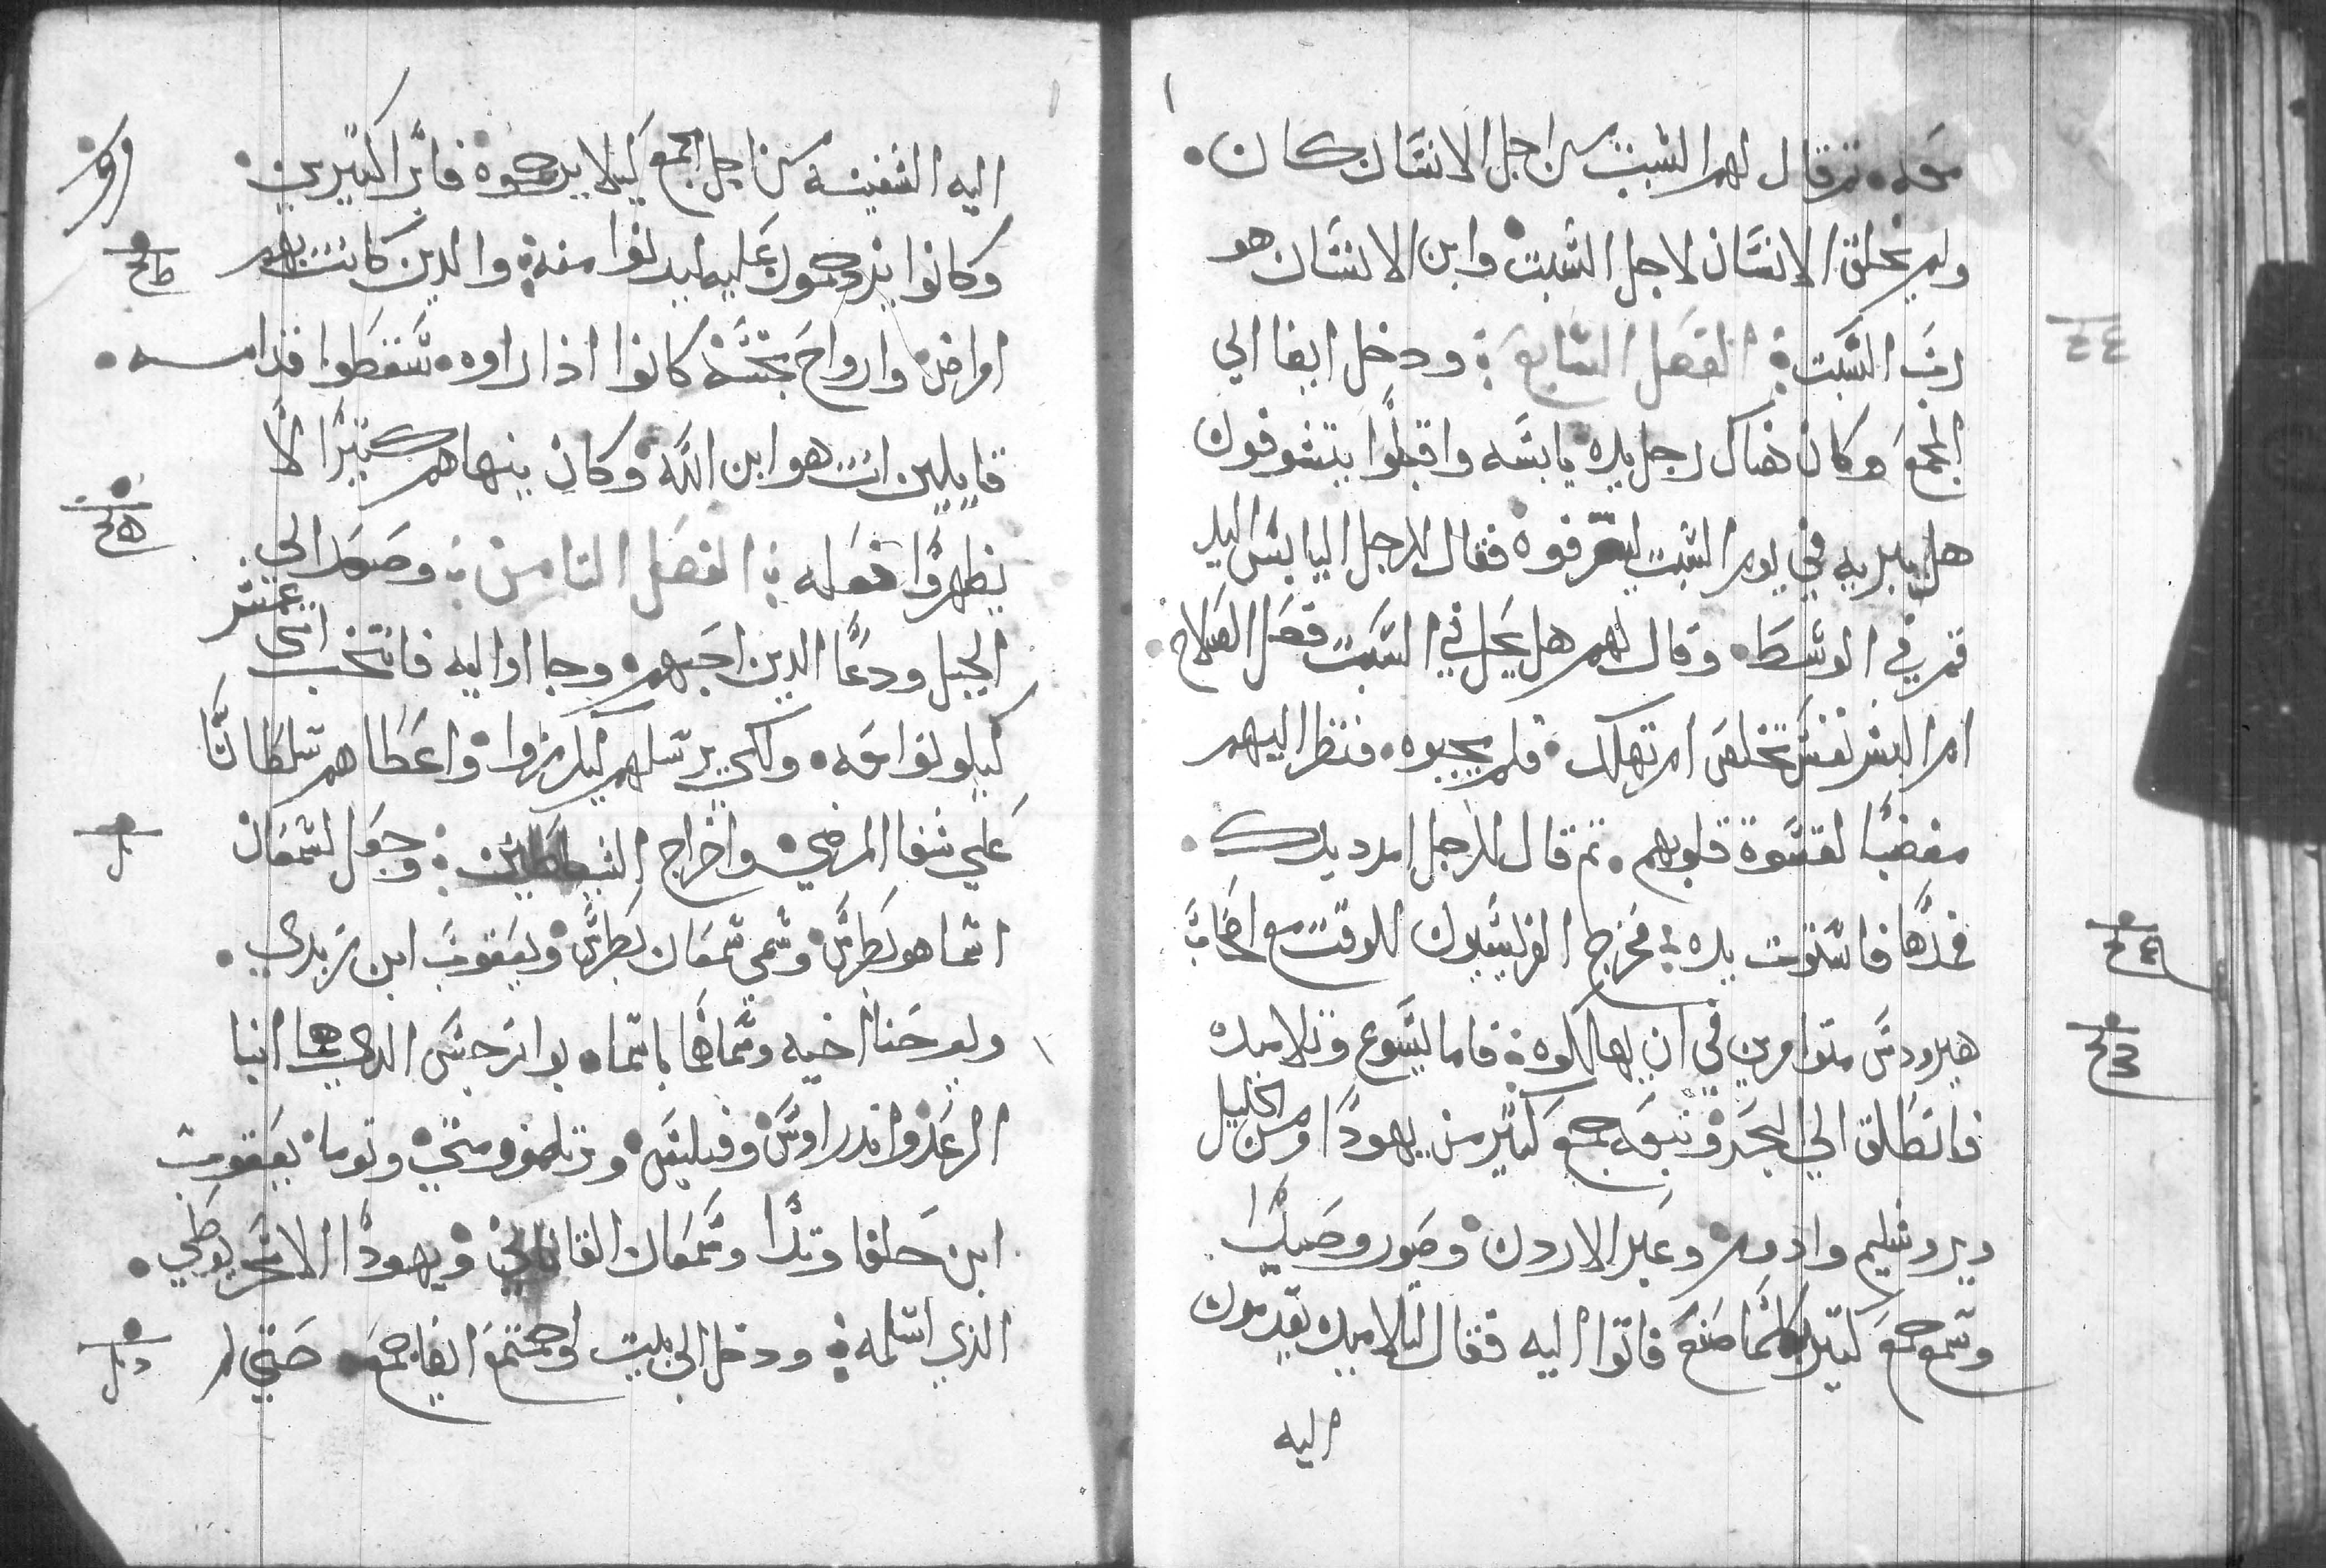 معه. ثم قال لهم السبت من اجل الانسان كان.
ولم يخلق الانسان لاجل السبت وابن الانسان هو
رب السبت: الفصل السابع: ودخل ايضا الي
المجمع وكان هناك رجل يده يابسه واقبلوا يتشوفون
هل يبريه في يوم السبت ليقرفوه فقال للرجل اليابس اليد
قم في الوسط. وقال لهم هل يحل في السبت فعل الصلاح.
ام الشر نفس تخلص ام تهلك. فلم يجيبوه. فنظر اليهم
مغضبًا لقسوة قلوبهم. ثم قال للرجل امدد يدك.
فمدها فاستوت يده: فخرج الفريسيون للوقت مع اصحاب
هيرودس متوامرين في ان يهلكوه: فاما يسوع وتلاميده
فانطلق الي البحر وتبعه جمع كثير من يهودا ومن الجليل
ويروشليم وادوم وعبر الاردن وصور وصيدا
وسمع جمع كثير كلما صنع فاتوا اليه فقال لتلاميده يقدمون
اليه
اليه السفينه من اجل الجمع كيلا يزحموه فابرا كثيرين.
وكانوا يزدحمون عليه ليدنوا منه: والدين كانت بهم
امراض وارواح نجسه كانوا اذا راوه. سقطوا قدامه.
قايلين انت هو ابن الله وكان ينهاهم كثيرًا الا
يظهروا فعله: الفصل الثامن: وصعد الي
الجبل ودعا الدين احبهم وجااوا اليه فانتخب اثني عشر
ليكونوا معه. ولكي يرسلهم ليكرزوا واعطاهم سلطانًا
علي شفا المرضي واخراج الشياطين: وجعل لسمعان
اسما هو بطرس وسمي سمعان بطرس ويعقوب ابن زبدي.
ويوحنا اخيه وسماهما باسما. بوانرجس الدي هما ابنا
الرعد واندراوس وفيليبس وبرتلمو ومتي وتوما يعقوب
ابن حلفا وتدا وسمعان القاناني ويهودا الاسخريوطي.
الذي اسلمه: ودخل الي بيت واجتمع ايضا جمع. حتي لم